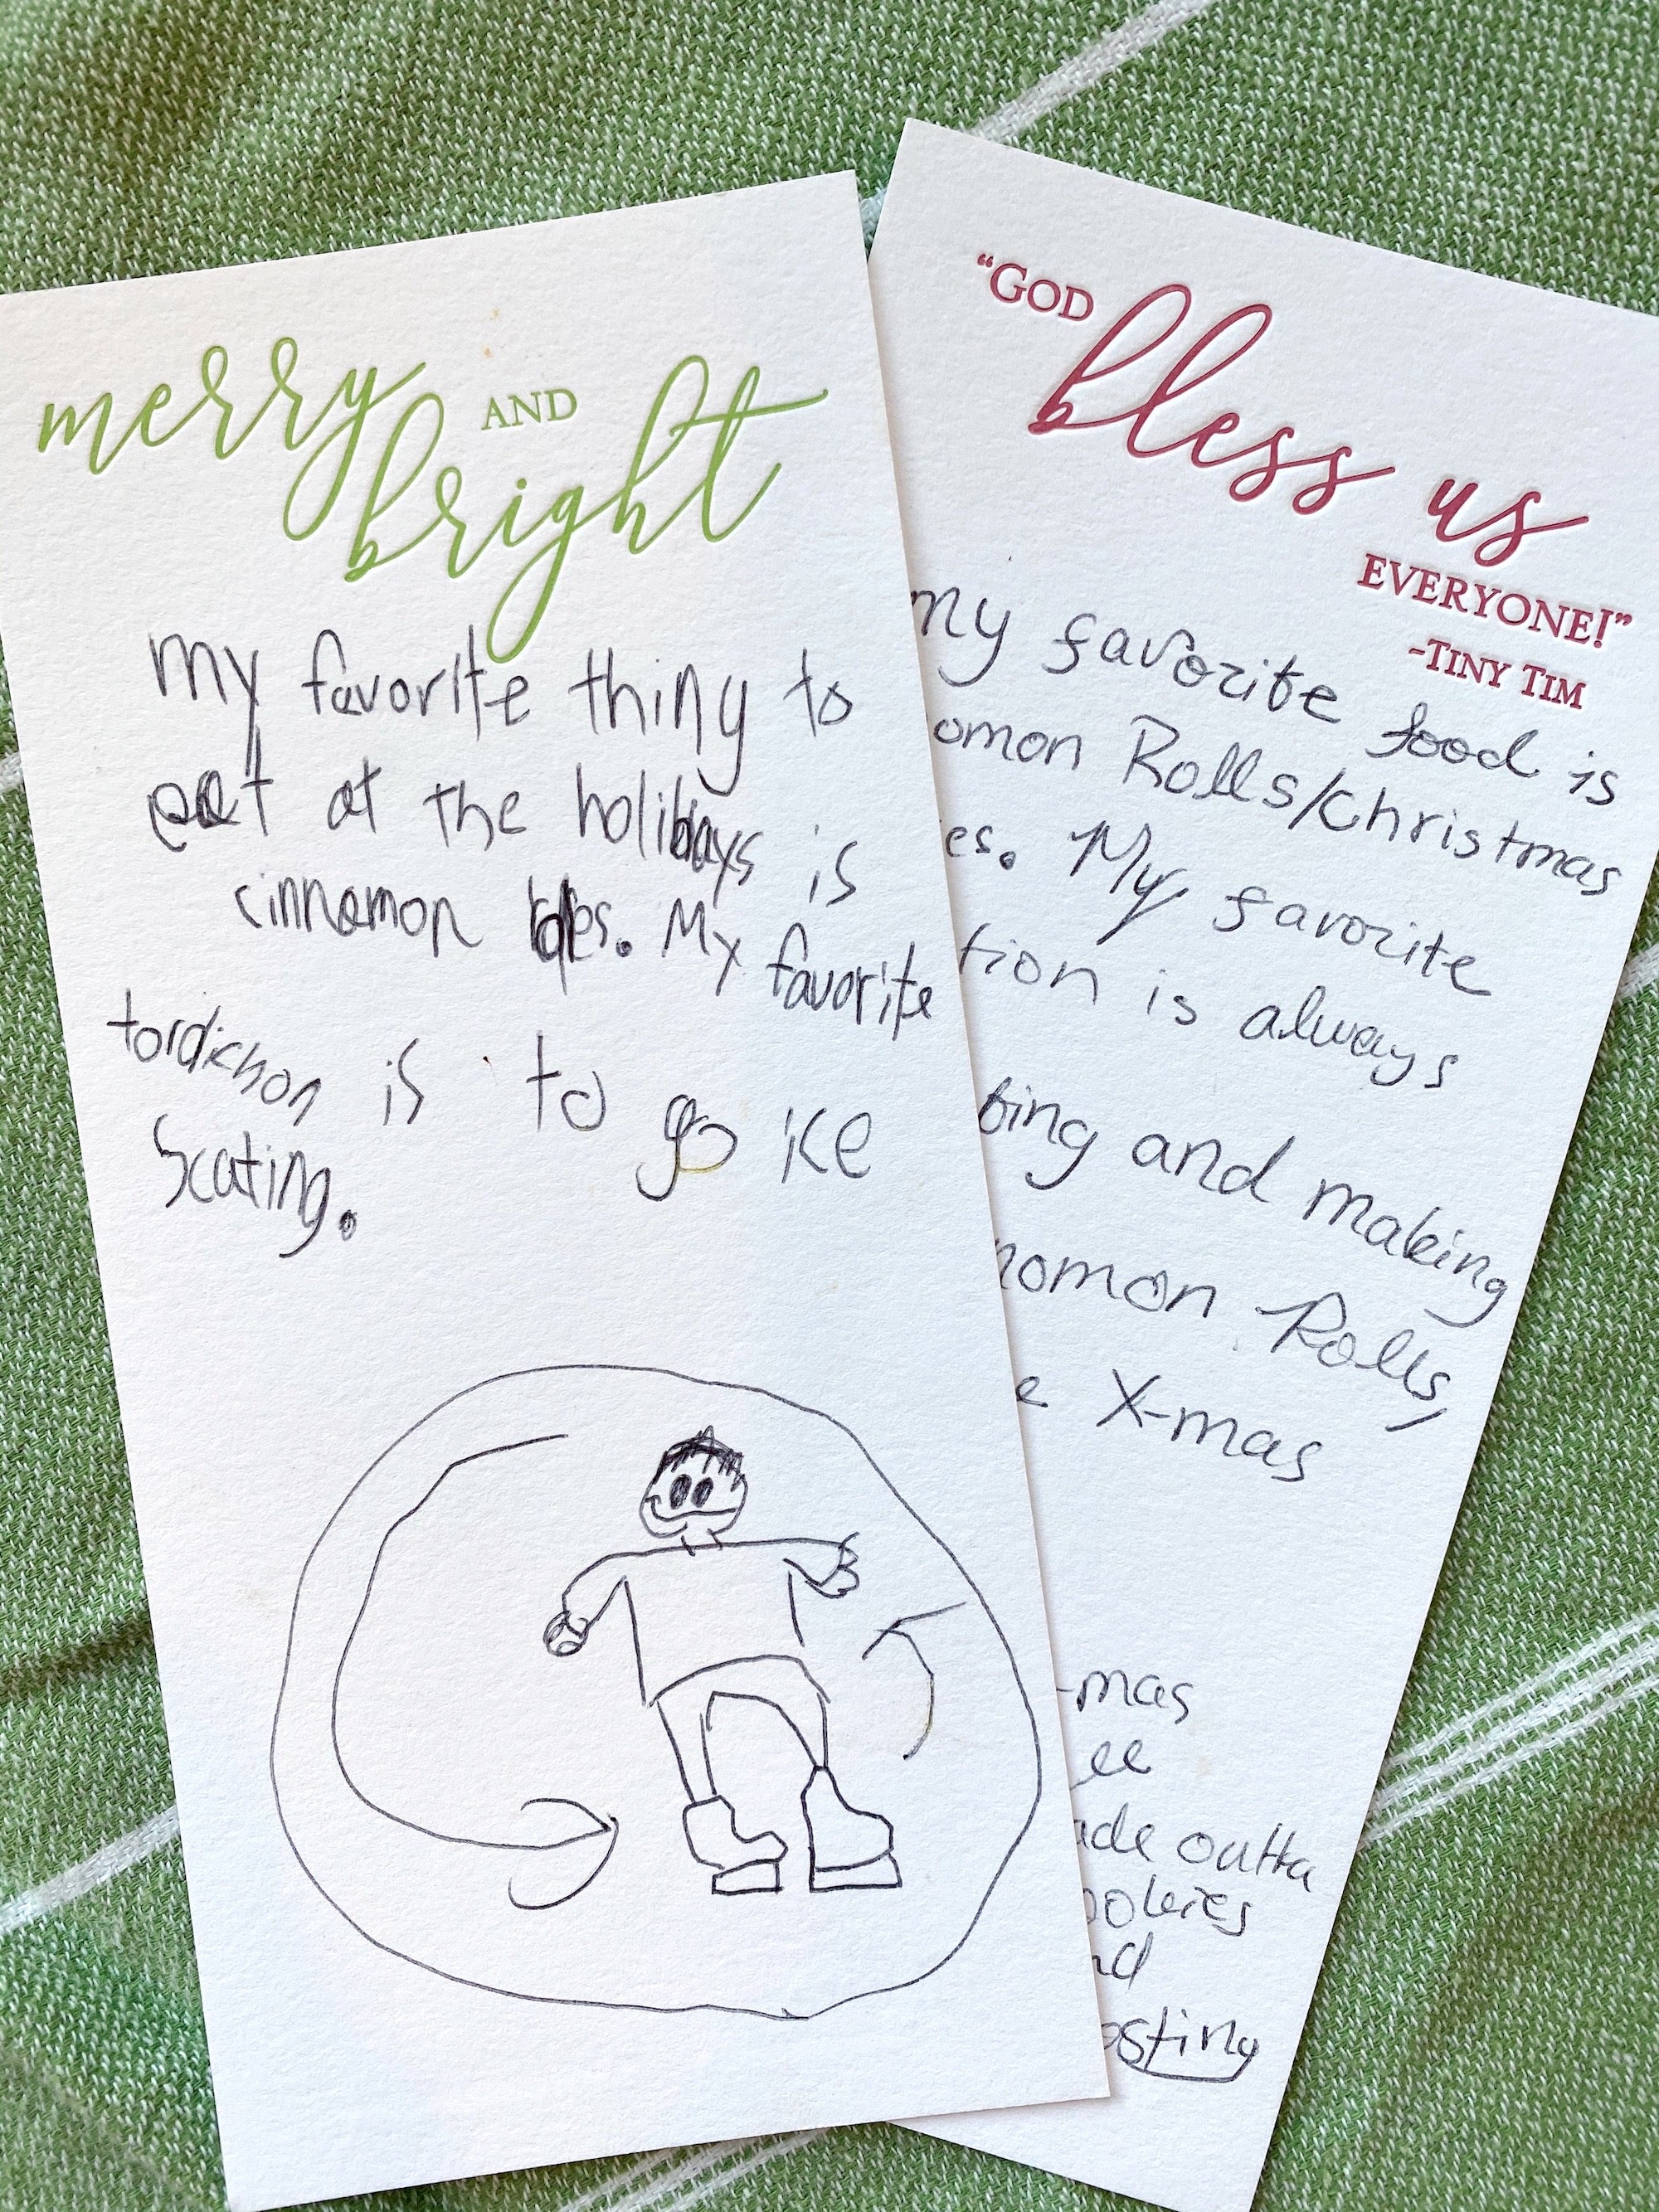 merry AND
bright
my favorite thing to
eat at the holidays is
cinnamon My favorite
tordichon is to go ice
Scating.
"GOD
bless us
EVERYONE!"
-TINY TIM
my favorite food is
omon Rolls/Christmas
es. My favorite
tion is always
ting and making
nomon Rolls,
e X-mas
-mas
ee
ade outta
ookies
nd
osting